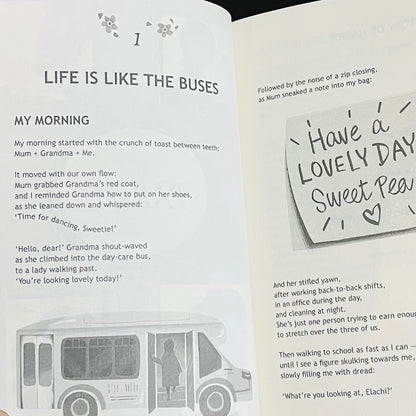 1
LIFE IS LIKE THE BUSES
MY MORNING
My morning started with the crunch of toast between teeth:
Mum + Grandma + Me.
It moved with our own flow:
Mum grabbed Grandma's red coat,
and I reminded Grandma how to put on her shoes,
as she leaned down and whispered:
'Time for dancing, Sweetie!'
'Hello, dear!' Grandma shout-waved
as she climbed into the day-care bus,
to a lady walking past.
'You're looking lovely today!'
Followed by the noise of a zip closing,
as Mum sneaked a note into my bag:
Have a
LOVELY DAY
Sweet Pea
And her stifled yawn,
after working back-to-back shifts,
in an office during the day,
and cleaning at night.
She's just one person trying to earn enough
to stretch over the three of us.
Then walking to school as fast as I can —
until I see a figure skulking towards me,
slowly filling me with dread:
'What're you looking at, Elachi?'